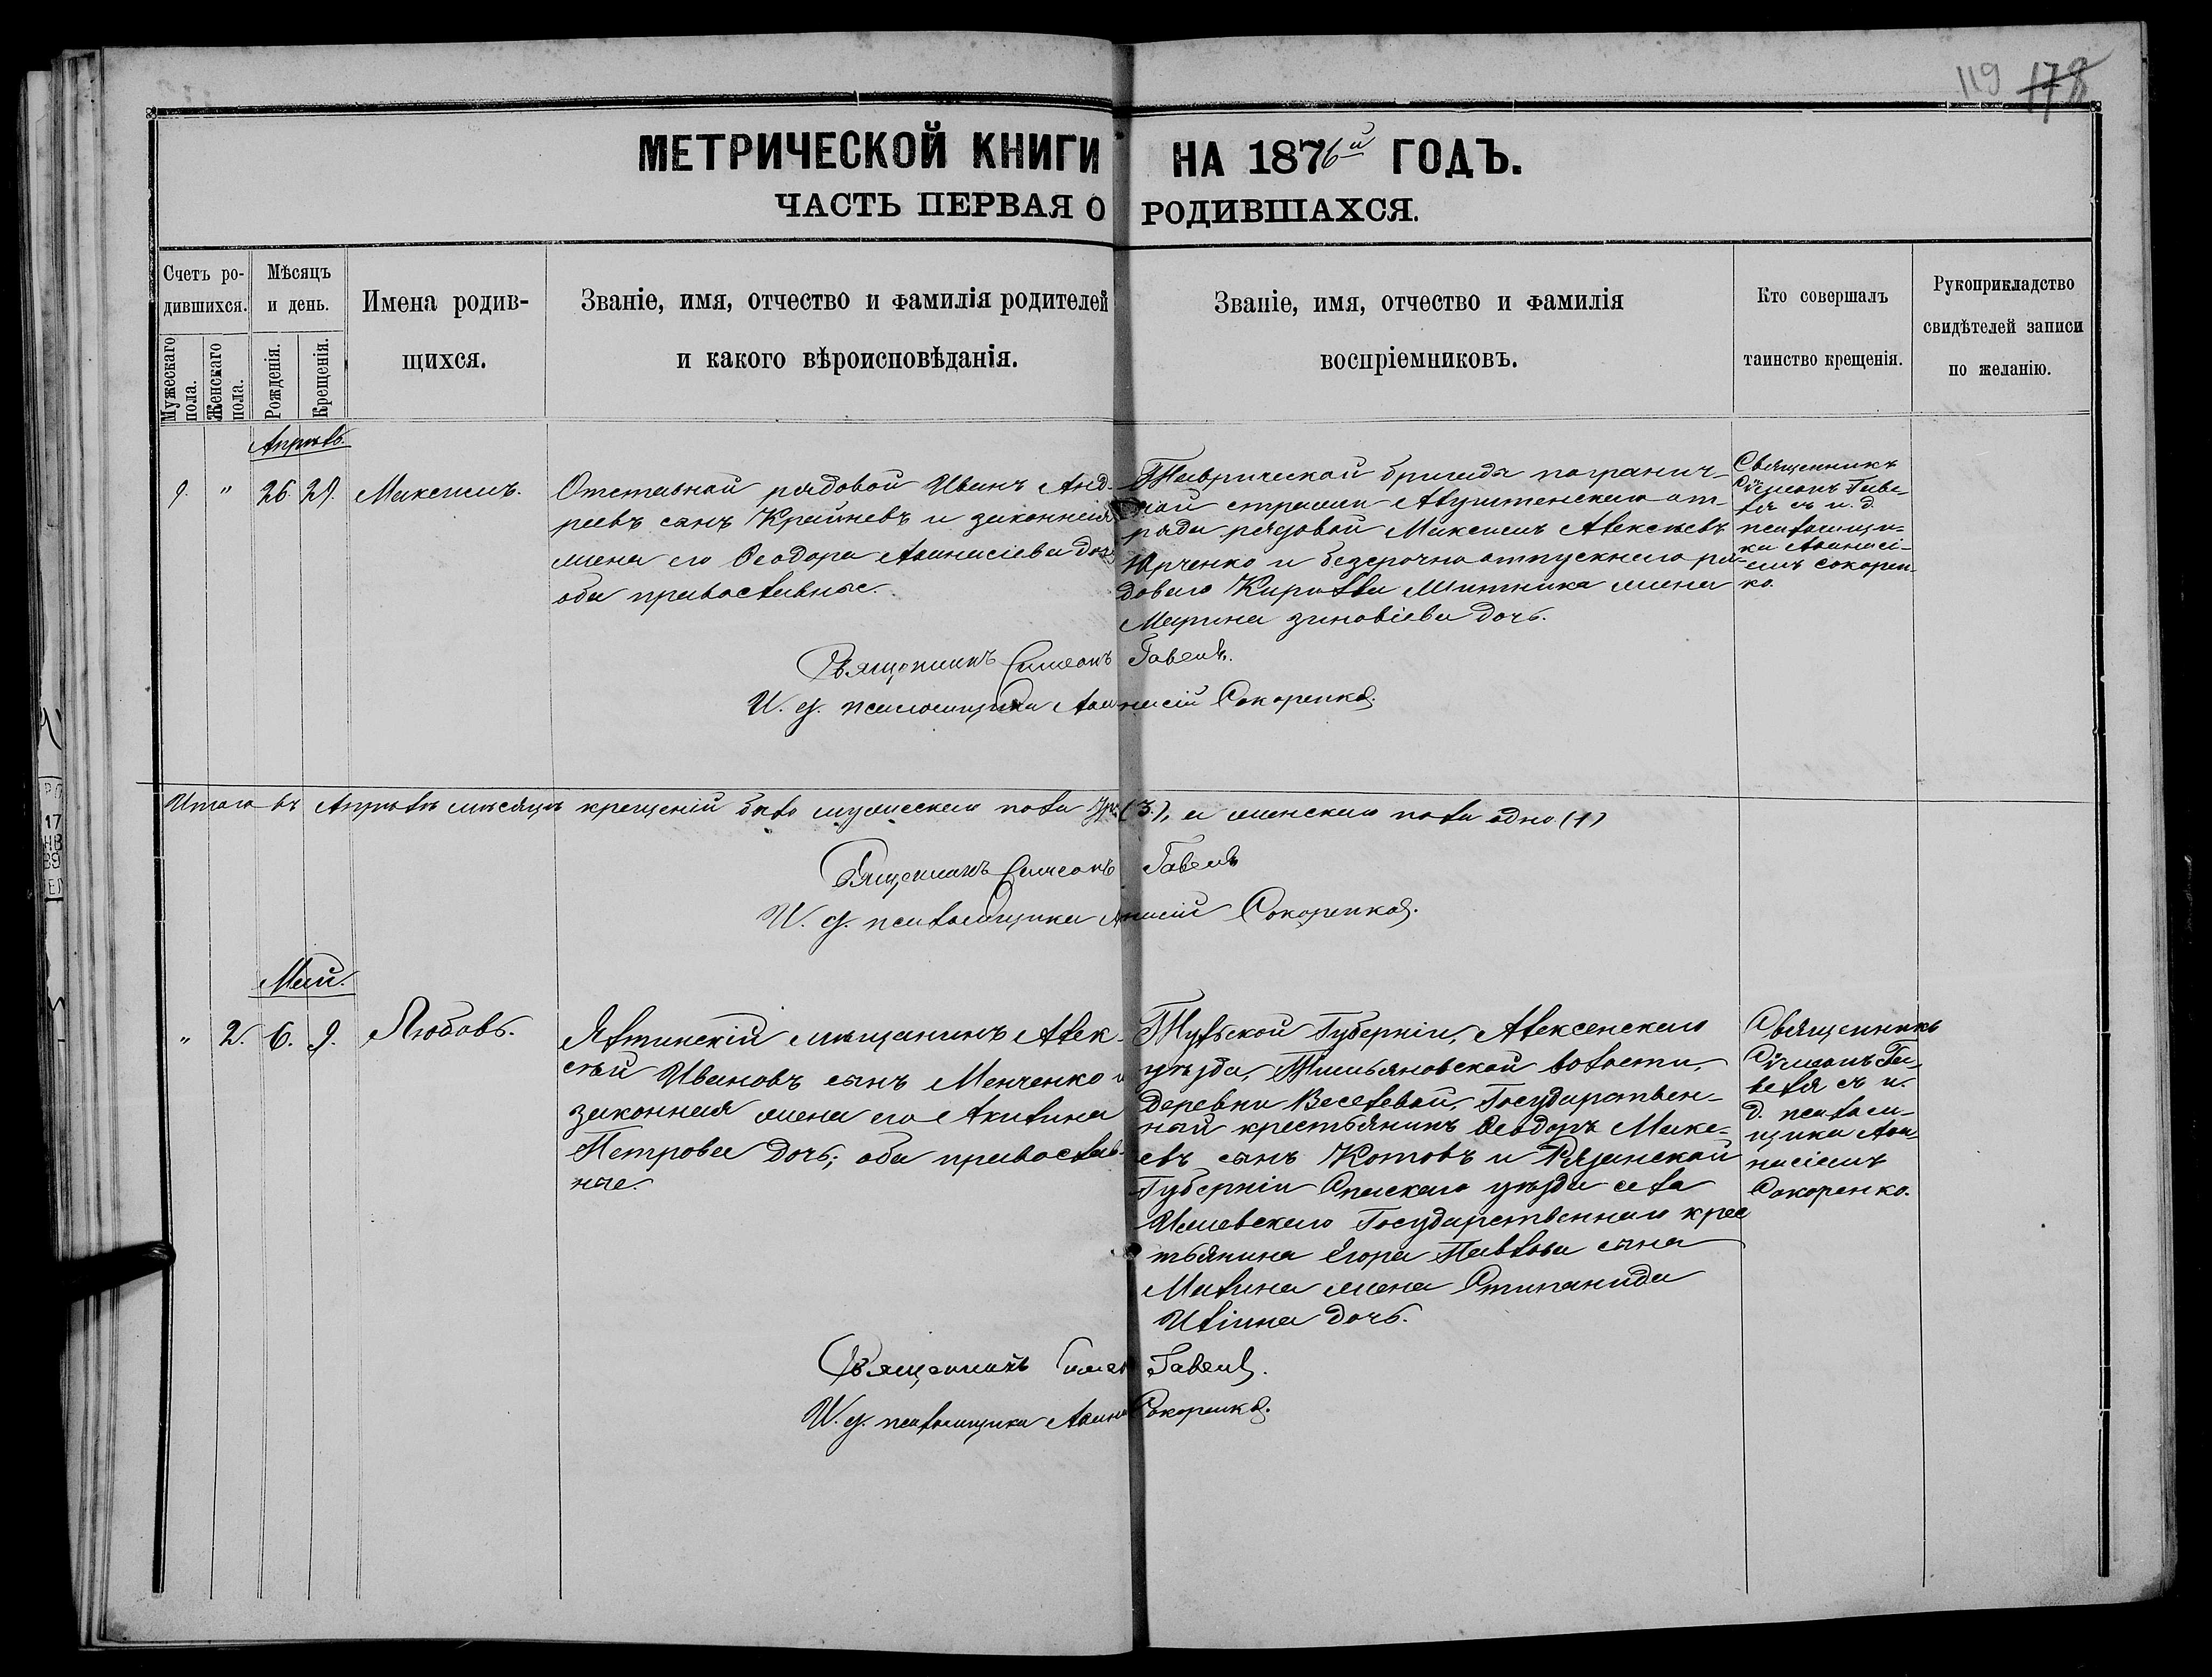 119 178
МЕТРИЧЕСКОЙ КНИГИ НА 1876й ГОДЪ.
ЧАСТЬ ПЕРВАЯ О РОДИВШАХСЯ.
Счетъ ро-
дившихся.
Мужескаго пола.
Женскаго пола.
Мѣсяцъ
и день.
Рожденія.
Крещенія.
Имена родив-
щихся.
Званіе, имя, отчество и фамилія родителей
и какого вѣроисповѣданія.
Званіе, имя, отчество и фамилія
воспріемниковъ.
Кто совершалъ
таинство крещенія.
Рукоприкладство
свидѣтелей записи
по желанію.
Апрѣль.
9. " 26. 29. Максимъ.
Отставной рядовой Иванъ Анд-
реевъ сынъ Крайневъ и законная
жена его Ѳеодора Аѳанасіева дочь
оба православные.
Таврической бригады погранич-
ной стражи Алуштенскаго от-
ряда рядовой Максимъ Алексѣевъ
Юрченко и безсрочно отпускнаго ря-
доваго Кирилла Шитника жена
Марина Зиновіева дочь.
Священникъ
Сімеонъ Гаве-
ля съ и. д.
псаломщи-
ка Аѳанасі-
емъ Сокорен-
ко.
Священникъ Симеонъ Гавеля.
И. д. псаломщика Аѳанасій Сокоренко.
Итого въ Апрѣлѣ мѣсяцѣ крещеній было мужескаго пола три (3.), а женскаго пола одно (1)
Священникъ Симеонъ Гавеля
И. д. псаломщика Аѳанасій Сокоренко.
Май.
" 2. 6. 9. Любовь.
Ялтинскій мѣщанинъ Алек-
сѣй Ивановъ сынъ Менченко и
законная жена его Акилина
Петрова дочь; оба православ-
ные.
Тульской Губерніи, Алексенскаго
уѣзда, волости,
деревни Веселевой, Государствен-
ный крестьянинъ Ѳеодоръ Маке-
евъ сынъ Котовъ и Рязанской
Губерніи Спаскаго уѣзда села
Ижевскаго Государственнаго крес
тьянина Егора Павлова сына
Малина жена Стипанида
Иліина дочь.
Священникъ
Сімеонъ Га-
веля съ и.
д. псалом-
щика Аѳа-
насіемъ
Сокоренко.
Священникъ Симеонъ Гавеля.
И. д. псаломщика Аѳана Сокоренко.